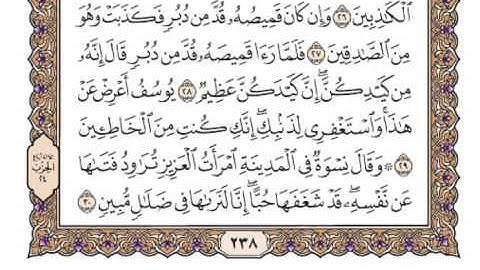 ٱلْكَٰذِبِينَ ٢٦ وَإِن كَانَ قَمِيصُهُۥ قُدَّ مِن دُبُرٍ فَكَذَبَتْ وَهُوَ
مِنَ ٱلصَّٰدِقِينَ ٢٧ فَلَمَّا رَءَا قَمِيصَهُۥ قُدَّ مِن دُبُرٍ قَالَ إِنَّهُۥ
مِن كَيْدِكُنَّ ۖ إِنَّ كَيْدَكُنَّ عَظِيمٌ ٢٨ يُوسُفُ أَعْرِضْ عَنْ
هَٰذَا ۚ وَٱسْتَغْفِرِى لِذَنۢبِكِ ۖ إِنَّكِ كُنتِ مِنَ ٱلْخَاطِـِٔينَ
٢٩ ۞ وَقَالَ نِسْوَةٌ فِى ٱلْمَدِينَةِ ٱمْرَأَتُ ٱلْعَزِيزِ تُرَٰوِدُ فَتَىٰهَا
عَن نَّفْسِهِۦ ۖ قَدْ شَغَفَهَا حُبًّا ۖ إِنَّا لَنَرَىٰهَا فِى ضَلَٰلٍ مُّبِينٍ ٣٠
الحزب
٢٤
٢٣٨